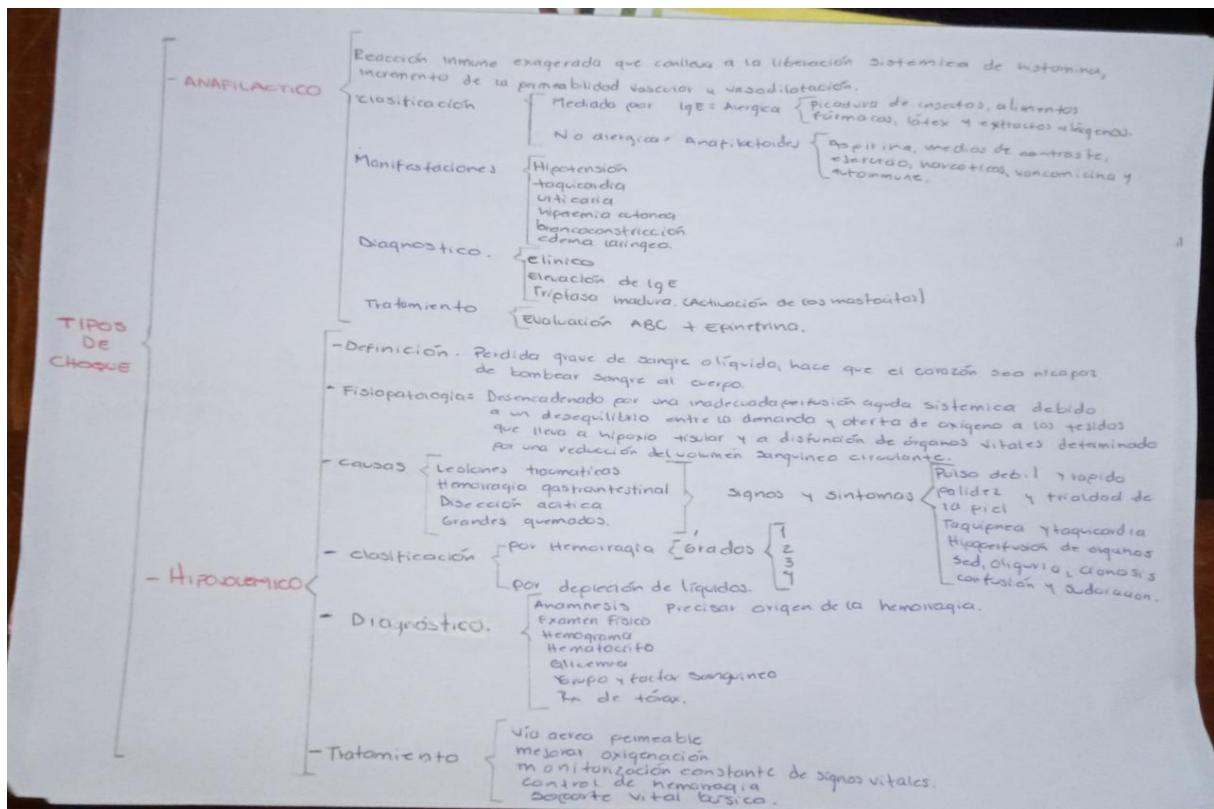 TIPOS
DE
CHOQUE
- ANAFILACTICO
Reacción inmune exagerada que conlleva a la liberación sistemica de histamina,
incremento de la permeabilidad vascular y vasodilatación.
Clasificación
Mediado por IgE = Alergica
Picadura de insectos, alimentos
fármacos, látex y extractos alergenos.
No alergica = Anafilactoides
Aspirina, medios de contraste,
ejercicio, narcoticos, vancomicina y
autoinmune.
Manifestaciones
Hipotensión
taquicardia
urticaria
hiperemia cutanea
broncoconstricción
edema laringeo.
Diagnostico.
clinico
Elevación de IgE
Triptasa madura. (Activación de los mastocitos)
Tratamiento
Evaluación ABC + Epinefrina.
- HIPOVOLEMICO
- Definición. Perdida grave de sangre o líquido, hace que el corazón sea incapaz
de bombear sangre al cuerpo.
- Fisiopatología = Desencadenado por una inadecuada perfusión aguda sistemica debido
a un desequilibrio entre la demanda y oferta de oxígeno a los tejidos
que lleva a hipoxia tisular y a disfunción de órganos vitales determinado
por una reducción del volumen sanguineo circulante.
- Causas
Lesiones traumaticas
Hemorragia gastrointestinal
Disección aortica
Grandes quemados.
signos y sintomas
Pulso debil y rapido
palidez y frialdad de
la piel
Taquipnea y taquicardia
Hipoperfusión de organos
sed, oliguria, cianosis
confusión y sudoracion.
- clasificación
por Hemorragia
Grados
1
2
3
4
por depleción de líquidos.
- Diagnóstico.
Anamnesis Precisar origen de la hemorragia.
Examen Fisico
Hemograma
Hematocrito
Glicemia
Grupo y factor sanguineo
Rx de tórax.
- Tratamiento
Vía aerea permeable
mejorar oxigenación
monitorización constante de signos vitales.
control de hemorragia
Soporte vital basico.